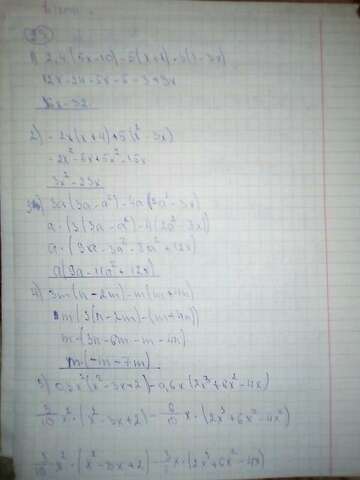 1) 2,4(5x-10)-5(x+1)+3(1-3x)
12x-24-5x-5-3+9x
16x-32
2) -2x(x+4)+5(x²-3x)
-2x²-8x+5x²-15x
3x²-23x
3) 3a(3a-a²)-4a(2a²-3x)
a·(3(3a-a²)-4(2a²-3x))
a·(9a-3a²-8a²+12x)
a(9a-11a²+12x)
4) 3m(n-2m)-m(m+4n)
m(3(n-2m)-(m+4n))
m·(3n-6m-m-4n)
m·(-n-7m)
5) 0,3x²(x²-3x+2)-0,6x(2x³+6x²-4x)
3/10 x²·(x²-3x+2)-6/10 x·(2x³+6x²-4x²)
3/10 x²·(x²-3x+2)-3/5 x·(2x³+6x²-4x)